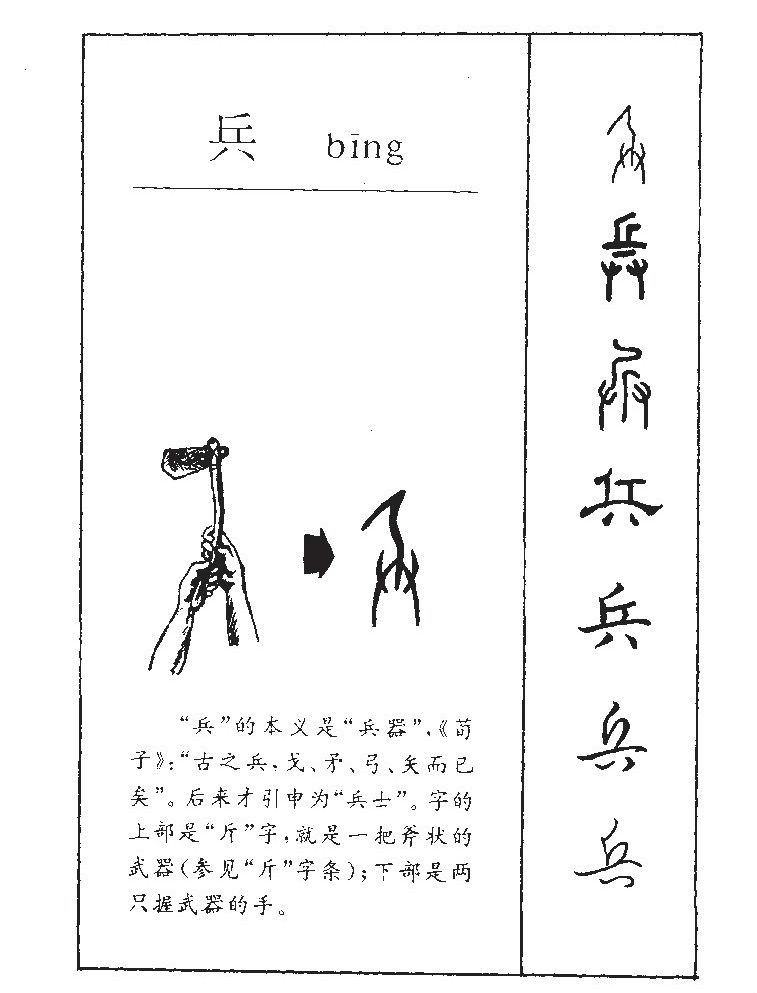 兵 bīng
“兵”的本义是“兵器”，《荀
子》：“古之兵，戈、矛、弓、矢而已
矣”。后来才引申为“兵士”。字的
上部是“斤”字，就是一把斧状的
武器（参见“斤”字条）；下部是两
只握武器的手。
兵
兵
兵
兵
兵
兵
兵